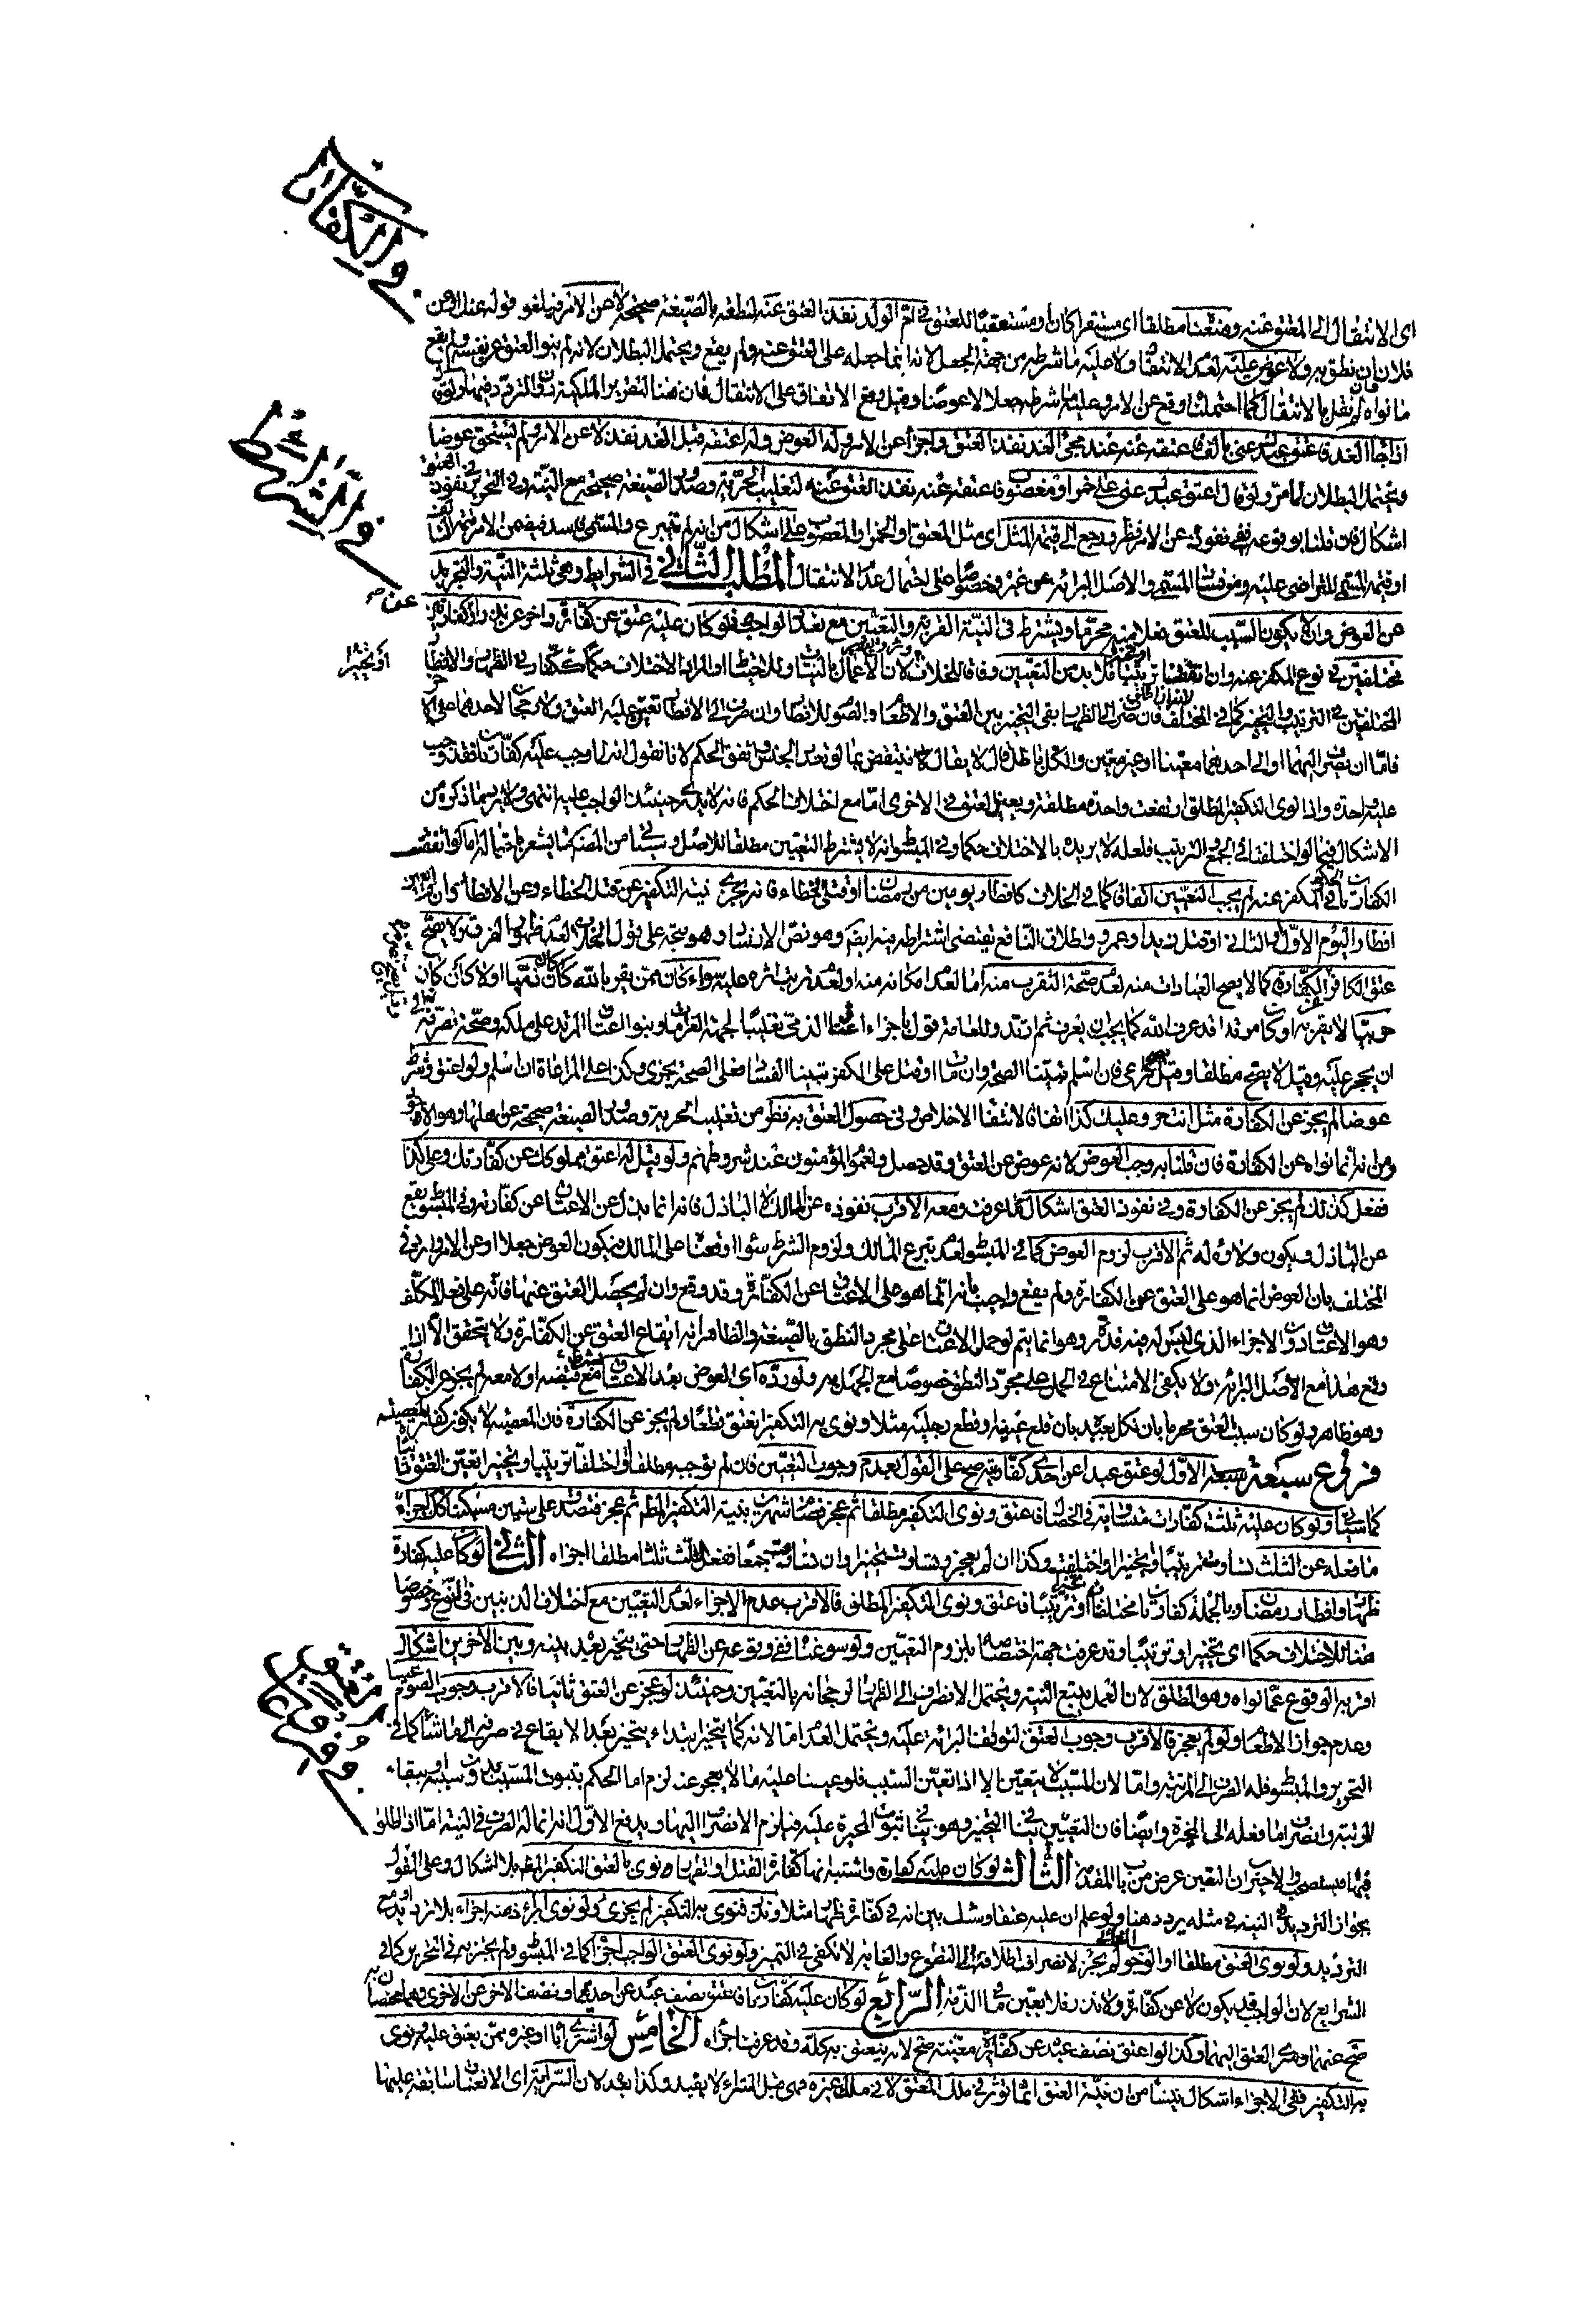 في الكفارات
اى الانتقال الى المعتق عنه ومنعنا مطلقا اى مستقرا كان او مستعقبا للعتق في ام الولد نفذ العتق عنه لنطقه بالصيغة صحيحة لا عن الامر فيلغو قوله عنك او عن
فلان ان نطق به ولا عوض عليه لعدم الانتقال ولا عليه ما شرطه من جهة الجعل لانه انما جعله على العتق عنه ولم يقع ويحتمل البطلان لانه لم ينو العتق عن نفسه ولم يقع
ما نواه وان لم نقل بالانتقال كما احتملنا وقع عن الامر وعليه ما شرطه جعلا لا عوضا وقيل وقع الاتفاق على الانتقال
اذا جاء الغد فاعتق عبدك عنى بالف فاعتقه عنه عند مجئ الغد نفذ العتق واجزأ عن الامر وله العوض ولو اعتقه قبل الغد نفذ لا عن الامر ولم يستحق عوضا
ويحتمل البطلان لما مر ولو قال اعتق عبدك عنى على خمر او مغصوب فاعتقه عنه نفذ العتق عنه لتغليب الحرية وصدور الصيغة صحيحة مع النية وفى التحرير في نفوذ العتق
اشكال فان قلنا بوقوعه ففى نفوذه عن الامر نظر ورجع الى قيمة المثل اى مثل المعتق او الخمر او المغصوب على اشكال من انه لم يتبرع والمسمى فاسد فيضمن الامر قيمة
او قيمة المسمى للتراضى عليه ومن فساد المسمى والاصل البرائة عن غيره وخصوصا على احتمال عدم الانتقال المطلب الثانى في الشرايط وهى ثلثة النية والتجريد
في الشرائط
عن العوض وان لا يكون السبب للعتق فعلا منه محرما ويشترط فى النية القربة والتعيين مع تعدد الواجب فلو كان عليه عتق عن كفارة واخر عن نذر او كفارتان
مختلفتين في نوع المكفر عنه وان اتفقتا ترتيبا او تخييرا فلا بد من التعيين وفاقا للخلاف لان الاعمال بالنيات وللاحتياط او المراد الاختلاف حكما ككفارتى الظهار والافطار
المختلفتين في الترتيب والتخيير كما في المختلف فان صرف الى الظهار بقى التخيير بين العتق والاطعام والصوم للافطار وان صرف الى الافطار تعين عليه العتق ولا رجحان لاحدهما على الاخر
فاما ان يصرف اليهما او الى احدهما معينا او غير معين والكل باطل قال لا يقال ينتقض بما لو تعدد الجنس واتفق الحكم لانا نقول انه لما وجب عليه كفارتان فقد وجب
عليه واحدة واذا نوى التكفير المطلق ارتفعت واحدة مطلقة وبقى العتق في الاخرى اما مع اختلاف الحكم فانه لا يدرى حينئذ الواجب عليه انتهى ولا يجرى ما ذكره من
الاشكال فيما لو اختلفتا في الجمع والترتيب فلعله لا يريده بالاختلاف حكما وفى المبسوط انه لا يشترط التعيين مطلقا للاصل وسيأتى من المصنف ما يشعر باحتماله اما لو اتفقت
الكفارات في المكفر عنه لم يجب التعيين اتفاقا كما في الخلاف كافطار يومين من رمضان او قتلى الخطاء فانه يجزى نية التكفير عن قتل الخطاء وعن الافطار
افطار اليوم الاول او الثانى او قتل زيد او عمرو واطلاق النافع يقتضى اشتراطه فيه ايضا وهو نص الارشاد وهو متجه على قول الخلاف لعدم ظهور الفرق ولا يصح
عتق الكافر في الكفارة كما لا يصح العبادات منه لعدم صحة التقرب منه اما لعدم امكانه منه او لعدم ترتب اثره عليه سواء كان ممن يقر بالله كان ذميا اولا كان
حربيا لا يقر به او كان مرتدا قد عرف الله كما يجب ان يعرف ثم ارتد وللعامة قول باجزاء اعتاق الذمى تغليبا لجهة الغرامات وبنوا اعتاق المرتد على ملكه وصحة تصرفه
ان يحجر عليه وقيل لا يصح مطلقا وقيل مراعى فان اسلم تبينا الصحة وان مات او قتل على الكفر تبينا الفساد فعلى الصحة يجزى وكذا على المراعاة ان اسلم ولو اعتق وشرط
عوضا لم يجز عن الكفارة مثل انت حر وعليك كذا اتفاقا لانتفاء الاخلاص وفى حصول العتق به نظر من تغليب الحرية وصدور الصيغة صحيحة عن اهلها وهو الاقوى
ومن انه انما نواه عن الكفارة فان قلنا به وجب العوض لانه عوض عن العتق وقد حصل ولعموم المؤمنون عند شروطهم ولو قيل له اعتق مملوكك عن كفارتك وعلى كذا
ففعل كذلك لم يجز عن الكفارة وفى نفوذ العتق اشكال كما عرفت ومعه الاقرب نفوذه عن المالك لا الباذل فانه انما بذل عن الاعتاق عن كفارته وفى المبسوط يقع
عن الباذل ويكون ولاؤه له ثم الاقرب لزوم العوض كما في المبسوط لعدم تبرع المالك ولزوم الشرط سواء اوقعنا على المالك فيكون العوض جعلا او عن الامر وفى
المختلف بان العوض انما هو على العتق عن الكفارة ولم يقع واجيب بانه انما هو على الاعتاق عن الكفارة وقد وقع وان لم يحصل العتق عنها فانه على فعل المكلف
وهو الاعتاق دون الاجزاء الذى ليس له فيه قدرة وهو انما يتم لو حمل الاعتاق على مجرد النطق بالصيغة والظاهر انه ايقاع العتق عن الكفارة ولا يتحقق الا اذا
وقع هذا مع الاصل البرائة ولا يكفى الامتناع في الحمل على مجرد النطق خصوصا مع الجهل به ولو رده اى العوض بعد الاعتاق مع قبضه اولا معه لم يجز عن الكفارة
وهو ظاهر ولو كان سبب العتق محرما بان نكل بعبده بان قلع عينيه او قطع رجليه مثلا ونوى به التكفير انعتق قطعا ولم يجز عن الكفارة فان المعصية لا يكون كفارة لمعصيته
فروع سبعة الاول لو اعتق عبدا عن احدى كفارتيه صح على القول بعدم وجوب التعيين فان لم نوجبه مطلقا واختلفتا ترتيبا وتخييرا تعين العتق ثانيا
كما سيأتى ولو كان عليه ثلث كفارات متساوية في الخصال فاعتق ونوى التكفير مطلقا ثم عجز فصام شهرين بنية التكفير المطلق ثم عجز فتصدق على ستين مسكينا كذلك اجزاه
ما فعله عن الثلث تساوت ترتيبا او تخييرا واختلفت وكذا ان لم يعجز وتساوت تخييرا وان تساوت جمعا ففعل الثلث ثلثا مطلقا اجزاه الثانى لو كان عليه كفارة
ظهار وافطار رمضان وبالجملة كفارتان مختلفتان ترتيبا وتخييرا فاعتق ونوى التكفير المطلق فالاقرب عدم الاجزاء لعدم التعيين مع اختلاف الدينين في النوع وخصوصا
هنا للاختلاف حكما اى تخييرا وترتيبا وقد عرفت جهة اختصاصه بلزوم التعيين ولو سوغناه ففى وقوعه عن الظهار حتى يتخير بعده بينه وبين الاخرين اشكال
اقربه الوقوع عما نواه وهو المطلق لان العمل يتبع النية ويحتمل الانصراف الى الظهار لرجحانه بالتعيين وحينئذ لو عجز عن العتق ثانيا فالاقرب وجوب الصوم عينا
وعدم جواز الاطعام ولو لم يعجز فالاقرب وجوب العتق لتوقف البرائة عليه ويحتمل العدم اما لانه كما يتخير ابتداء يتخير بعد الايقاع في صرفه الى ما شاء كما في
التحرير والمبسوط فله الصرف الى المرتبة واما لان المسبب لا يتعين الا اذا تعين السبب فلو عينا عليه ما لا يعجز عنه لزم اما الحكم بثبوت المسبب بدون سببه او ببقاء
المرتبة وانصراف ما فعله الى المخيرة وايضا فان التعيين ينافى التخيير وهو ينافى ثبوت المخيرة عليه فيلزم الانصراف اليها ويدفع الاول انه انما له الصرف في النية اما اذا اطلق
فيهما فيستصحب والاخيران التعين عرض من باب المقدمة الثالث لو كان عليه كفارة واشتبه انها كفارة القتل او الظهار نوى بالعتق التكفير المطلق بلا اشكال وعلى القول
بجواز الترديد في النية في مثله يردد هنا ولو علم ان عليه عتقا وشك بين انه في كفارة ظهار مثلا او نذر فنوى به التكفير لم يجزى ولو نوى ابراء ذمته اجزاه بلا ترديد او مع
الترديد ولو نوى العتق مطلقا او الوجوب لم يجز لانصراف اطلاقه الى التطوع والغاية لا تكفى في التميز ولو نوى العتق الواجب اجزأ كما في المبسوط ولم يجتز به في التحرير كما في
الشرايع لان الواجب قد يكون لا عن كفارة ولا نذر فلا يعين ما في الذمة الرابع لو كان عليه كفارتان فاعتق نصف عبد عن احديهما ونصف الاخر عن الاخرى
صح عنهما وسرى العتق اليهما وكذا لو اعتق نصف عبده عن كفارة معينة صح لانه ينعتق به كله وقد عرفت اجزاه الخامس لو اشترى اباه او غيره ممن ينعتق عليه ونوى
به التكفير ففى الاجزاء اشكال ينشأ من ان نية العتق انما تؤثر في ملك المعتق لا في ملك غيره فهى قبل الشراء لا يفيد وكذا بعده لان السراية اى الانعتاق سابقة عليها